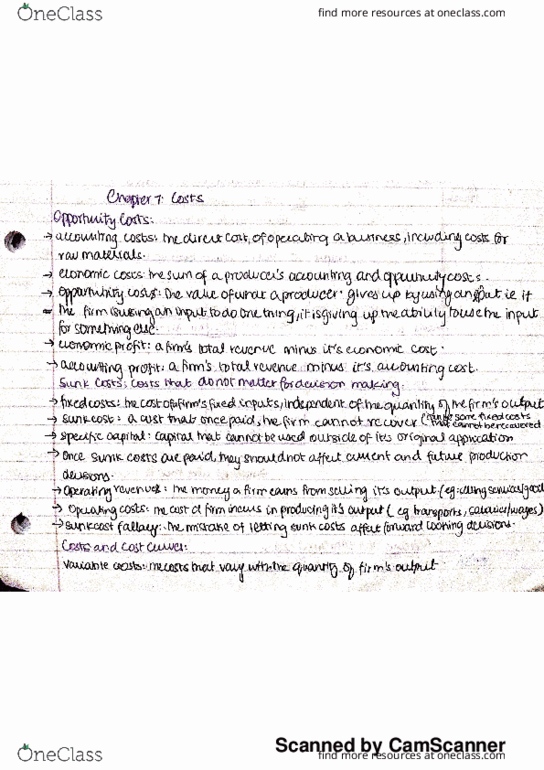 OneClass
find more resources at oneclass.com
Chapter 7: Costs
Opportunity Costs:
→ accounting costs: the direct cost of operating a business, including costs for
raw materials.
→ economic costs: the sum of a producer's accounting and opportunity costs.
→ opportunity costs: the value of what a producer gives up by using an input ie it
the firm is using an input to do one thing, it is giving up the ability to use the input
for something else.
→ economic profit: a firm's total revenue minus it's economic cost.
→ accounting profit: a firm's total revenue minus it's accounting cost.
Sunk Costs: costs that do not matter for decision making.
→ fixed costs: the cost of a firm's fixed inputs, independent of the quantity of the firm's output
→ sunk cost: a cost that once paid, the firm cannot recover ( some fixed costs
that cannot be recovered
→ specific capital: capital that cannot be used outside of its original application
→ Once sunk costs are paid, they should not affect current and future production
decisions.
→ Operating revenues: the money a firm earns from selling it's output (eg: selling services/goods
→ Operating costs: the cost a firm incurs in producing it's output ( eg transports, salaries/wages)
→ sunk cost fallacy: the mistake of letting sunk costs affect forward looking decisions.
Costs and Cost Curves:
Variable costs: the costs that vary with the quantity of firm's output
Scanned by CamScanner
OneClass
find more resources at oneclass.com